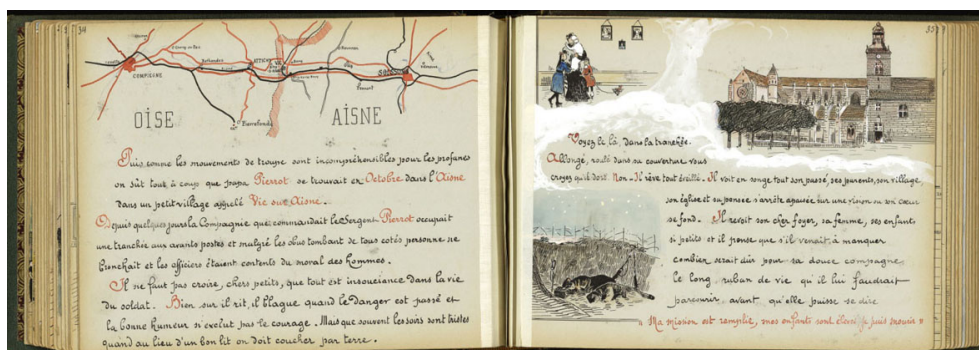 34
COMPIEGNE
ATTICHY
VIC
Pierrefonds
SOISSONS
OISE
AISNE
Puis comme les mouvements de troupe sont incompréhensibles pour les profanes
on sût tout à coup que papa Pierrot se trouvait en Octobre dans l'Aisne
dans un petit village appelé Vic sur Aisne.
Depuis quelques jours la Compagnie que commandait le Sergent Pierrot occupait
une tranchée aux avants postes et malgré les obus tombant de tous cotés personne ne
bronchait et les officiers étaient contents du moral des hommes.
Il ne faut pas croire, chers petits, que tout est insouciance dans la vie
du soldat. Bien sur il rit, il blague quand le danger est passé et
la bonne humeur n'exclut pas le courage. Mais que souvent les soirs sont tristes
quand au lieu d'un bon lit on doit coucher par terre.
35
Voyez le là, dans la tranchée.
Allongé, roulé dans sa couverture vous
croyez qu'il dort. Non. Il rêve tout éveillé. Il voit en songe tout son passé, ses parents, son village
son église et sa pensée s'arrête apaisée sur une vision où son coeur
se fond. Il revoit son cher foyer, sa femme, ses enfants
si petits et il pense que s'il venait à manquer
combien serait dûr pour sa douce compagne
le long ruban de vie qu'il lui faudrait
parcourir avant qu'elle puisse se dire
" Ma mission est remplie, mes enfants sont élevés je puis mourir "